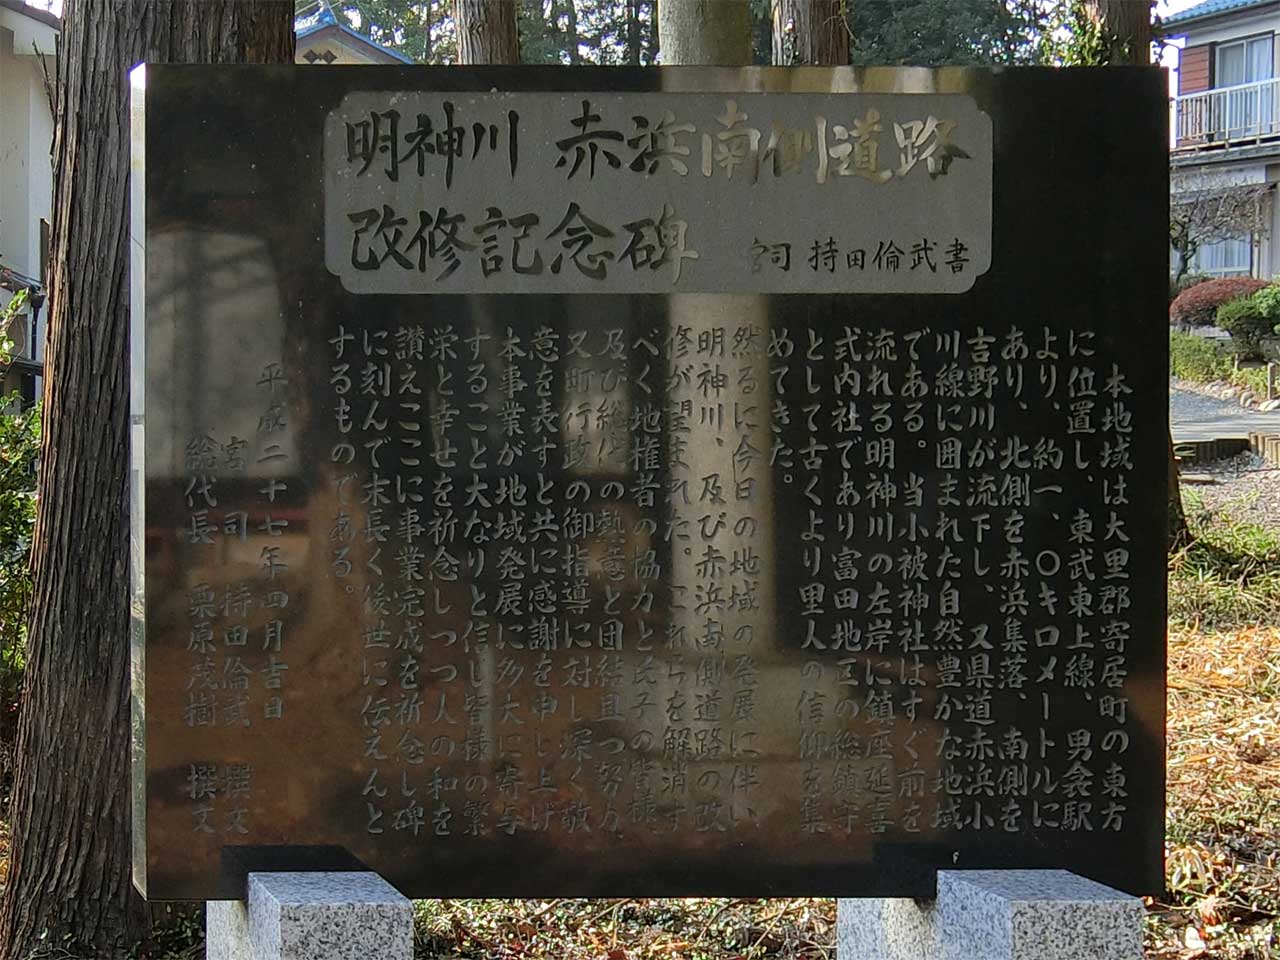 明神川 赤浜南側道路
改修記念碑 宮司 持田倫武書
本地域は大里郡寄居町の東方
に位置し、東武東上線、男衾駅
より、約一、〇キロメートルに
あり、北側を赤浜集落、南側を
吉野川が流下し、又県道赤浜小
川線に囲まれた自然豊かな地域
である。当小被神社はすぐ前を
流れる明神川の左岸に鎮座延喜
式内社であり富田地区の総鎮守
として古くより里人の信仰を集
めてきた。
然るに今日の地域の発展に伴い、
明神川、及び赤浜南側道路の改
修が望まれた。これらを解消す
べく地権者の協力と氏子の皆様、
及び総代の熱意と団結且つ努力、
又町行政の御指導に対し深く敬
意を表すと共に感謝を申し上げ
本事業が地域発展に多大に寄与
すること大なりと信じ皆様の繁
栄と幸せを祈念しつつ人の和を
讃えここに事業完成を祈念し碑
に刻んで末長く後世に伝えんと
するものである。
平成二十七年四月吉日
宮司 持田倫武 撰文
総代長 栗原茂樹 撰文